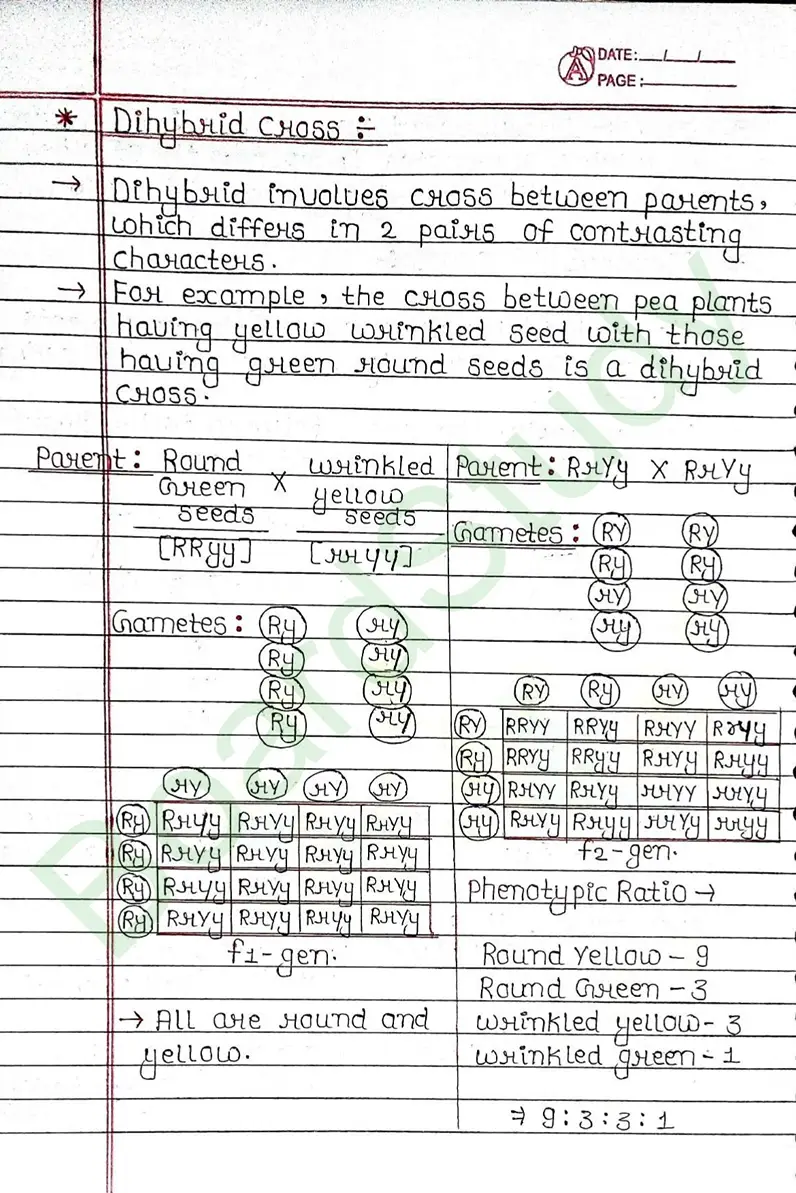 DATE: / /
PAGE:
* Dihybrid Cross :-
→ Dihybrid involves cross between parents,
which differs in 2 pairs of contrasting
characters.
→ For example, the cross between pea plants
having yellow wrinkled seed with those
having green round seeds is a dihybrid
cross.
Parent: Round Green seeds X wrinkled yellow seeds
[RRyy] [rrYY]
Gametes: Ry rY
Ry rY
Ry rY
Ry rY
rY rY rY rY
Ry RrYy RrYy RrYy RrYy
Ry RrYy RrYy RrYy RrYy
Ry RrYy RrYy RrYy RrYy
Ry RrYy RrYy RrYy RrYy
f1-gen.
→ All are round and
yellow.
Parent: RrYy X RrYy
Gametes: RY RY
Ry Ry
rY rY
ry ry
RY Ry rY ry
RY RRYY RRYy RrYY RrYy
Ry RRYy RRyy RrYy Rryy
rY RrYY RrYy rrYY rrYy
ry RrYy Rryy rrYy rryy
f2-gen.
Phenotypic Ratio →
Round Yellow - 9
Round Green - 3
wrinkled yellow - 3
wrinkled green - 1
⇒ 9:3:3:1
BoardStudy